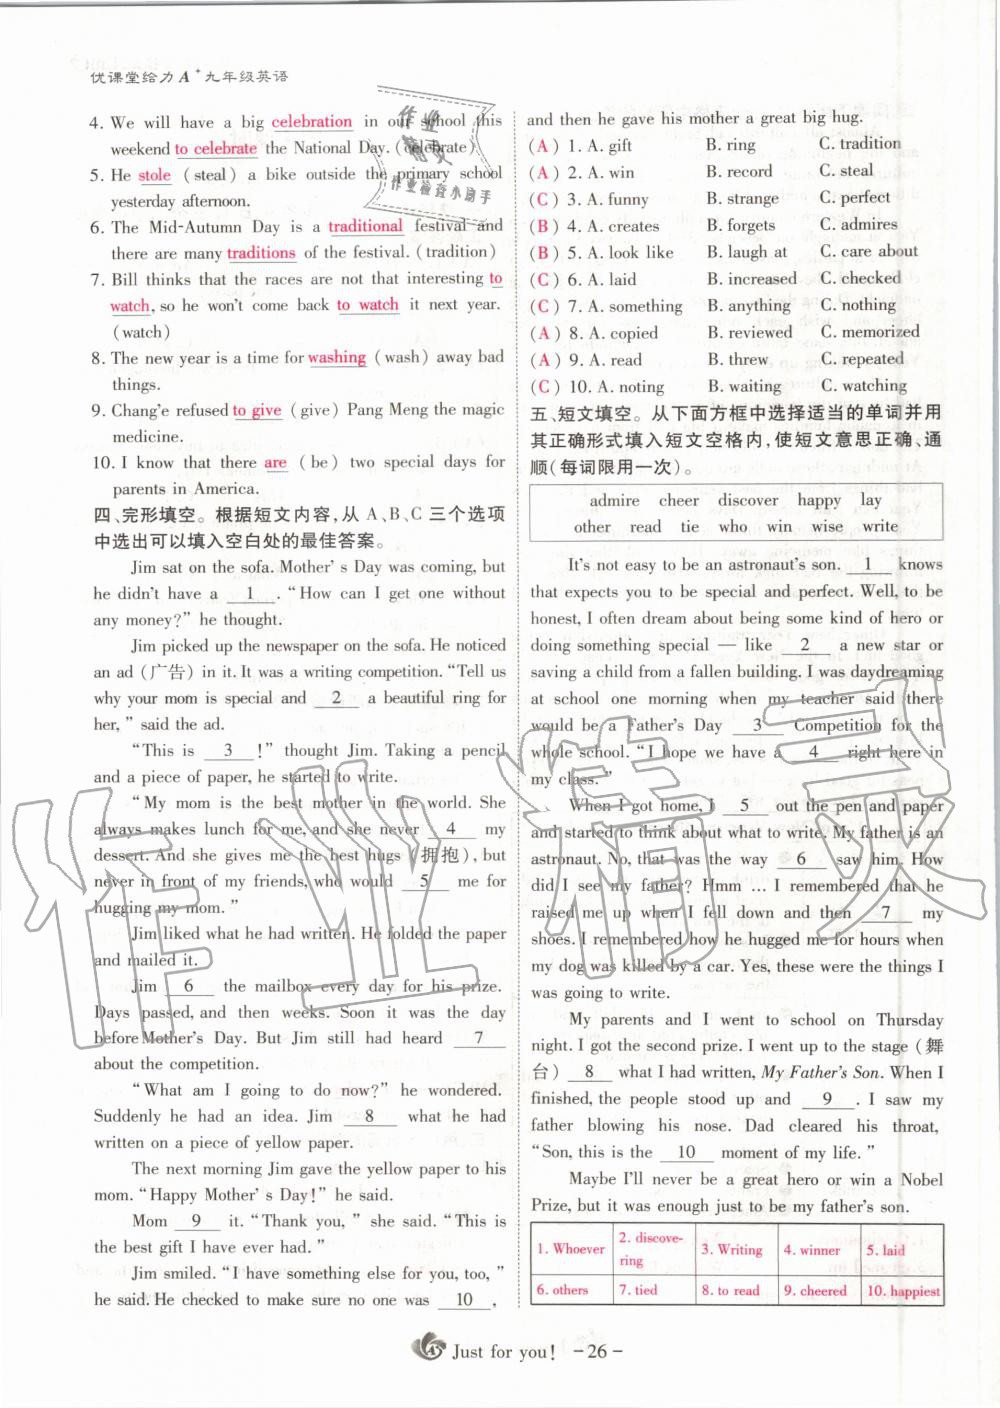 优课堂给力 A⁺ 九年级英语
4. We will have a big celebration in our school this
weekend to celebrate the National Day. (celebrate)
5. He stole (steal) a bike outside the primary school
yesterday afternoon.
6. The Mid-Autumn Day is a traditional festival and
there are many traditions of the festival. (tradition)
7. Bill thinks that the races are not that interesting to
watch, so he won't come back to watch it next year.
(watch)
8. The new year is a time for washing (wash) away bad
things.
9. Chang'e refused to give (give) Pang Meng the magic
medicine.
10. I know that there are (be) two special days for
parents in America.
四、完形填空。根据短文内容,从 A、B、C 三个选项
中选出可以填入空白处的最佳答案。
Jim sat on the sofa. Mother's Day was coming, but
he didn't have a 1 . "How can I get one without
any money?" he thought.
Jim picked up the newspaper on the sofa. He noticed
an ad (广告) in it. It was a writing competition. "Tell us
why your mom is special and 2 a beautiful ring for
her," said the ad.
"This is 3 !" thought Jim. Taking a pencil
and a piece of paper, he started to write.
"My mom is the best mother in the world. She
always makes lunch for me, and she never 4 my
dessert. And she gives me the best hugs (拥抱), but
never in front of my friends, who would 5 me for
hugging my mom."
Jim liked what he had written. He folded the paper
and mailed it.
Jim 6 the mailbox every day for his prize.
Days passed, and then weeks. Soon it was the day
before Mother's Day. But Jim still had heard 7
about the competition.
"What am I going to do now?" he wondered.
Suddenly he had an idea. Jim 8 what he had
written on a piece of yellow paper.
The next morning Jim gave the yellow paper to his
mom. "Happy Mother's Day!" he said.
Mom 9 it. "Thank you," she said. "This is
the best gift I have ever had."
Jim smiled. "I have something else for you, too,"
he said. He checked to make sure no one was 10 ,
and then he gave his mother a great big hug.
(A) 1. A. gift B. ring C. tradition
(A) 2. A. win B. record C. steal
(C) 3. A. funny B. strange C. perfect
(B) 4. A. creates B. forgets C. admires
(B) 5. A. look like B. laugh at C. care about
(C) 6. A. laid B. increased C. checked
(C) 7. A. something B. anything C. nothing
(A) 8. A. copied B. reviewed C. memorized
(A) 9. A. read B. threw C. repeated
(C) 10. A. noting B. waiting C. watching
五、短文填空。从下面方框中选择适当的单词并用
其正确形式填入短文空格内,使短文意思正确、通
顺(每词限用一次)。
admire cheer discover happy lay
other read tie who win wise write
It's not easy to be an astronaut's son. 1 knows
that expects you to be special and perfect. Well, to be
honest, I often dream about being some kind of hero or
doing something special — like 2 a new star or
saving a child from a fallen building. I was daydreaming
at school one morning when my teacher said there
would be a Father's Day 3 Competition for the
whole school. "I hope we have a 4 right here in
my class."
When I got home, I 5 out the pen and paper
and started to think about what to write. My father is an
astronaut. No, that was the way 6 saw him. How
did I see my father? Hmm … I remembered that he
raised me up when I fell down and then 7 my
shoes. I remembered how he hugged me for hours when
my dog was killed by a car. Yes, these were the things I
was going to write.
My parents and I went to school on Thursday
night. I got the second prize. I went up to the stage (舞
台) 8 what I had written, My Father's Son. When I
finished, the people stood up and 9 . I saw my
father blowing his nose. Dad cleared his throat,
"Son, this is the 10 moment of my life."
Maybe I'll never be a great hero or win a Nobel
Prize, but it was enough just to be my father's son.
1. Whoever 2. discove-ring 3. Writing 4. winner 5. laid
6. others 7. tied 8. to read 9. cheered 10. happiest
Just for you! －26－
作业精灵
作业检查小助手
作业精灵